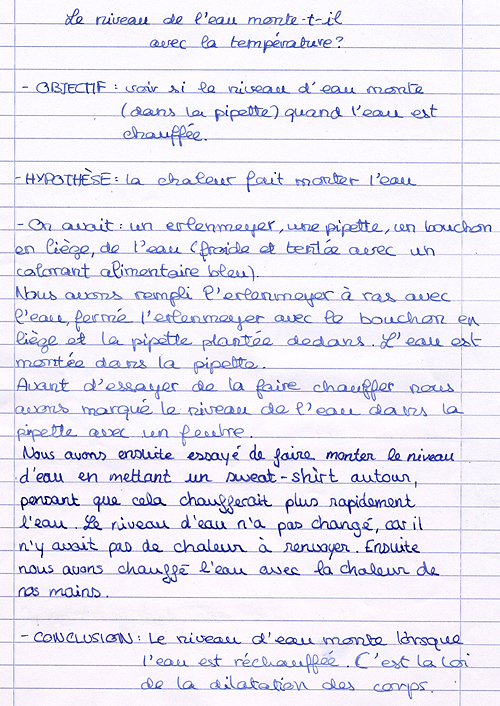 Le niveau de l'eau monte-t-il
avec la température?
- OBJECTIF : voir si le niveau d'eau monte
(dans la pipette) quand l'eau est
chauffée.
- HYPOTHÈSE : la chaleur fait monter l'eau
- On avait : un erlenmeyer, une pipette, un bouchon
en liège, de l'eau (froide et tentée avec un
colorant alimentaire bleu).
Nous avons rempli l'erlenmeyer à ras avec
l'eau, fermé l'erlenmeyer avec le bouchon en
liège et la pipette plantée dedans. L'eau est
montée dans la pipette.
Avant d'essayer de la faire chauffer nous
avons marqué le niveau de l'eau dans la
pipette avec un feutre.
Nous avons ensuite essayé de faire monter le niveau
d'eau en mettant un sweat-shirt autour,
pensant que cela chaufferait plus rapidement
l'eau. Le niveau d'eau n'a pas changé, car il
n'y avait pas de chaleur à renvoyer. Ensuite
nous avons chauffé l'eau avec la chaleur de
nos mains.
- CONCLUSION : Le niveau d'eau monte lorsque
l'eau est réchauffée. C'est la loi
de la dilatation des corps.